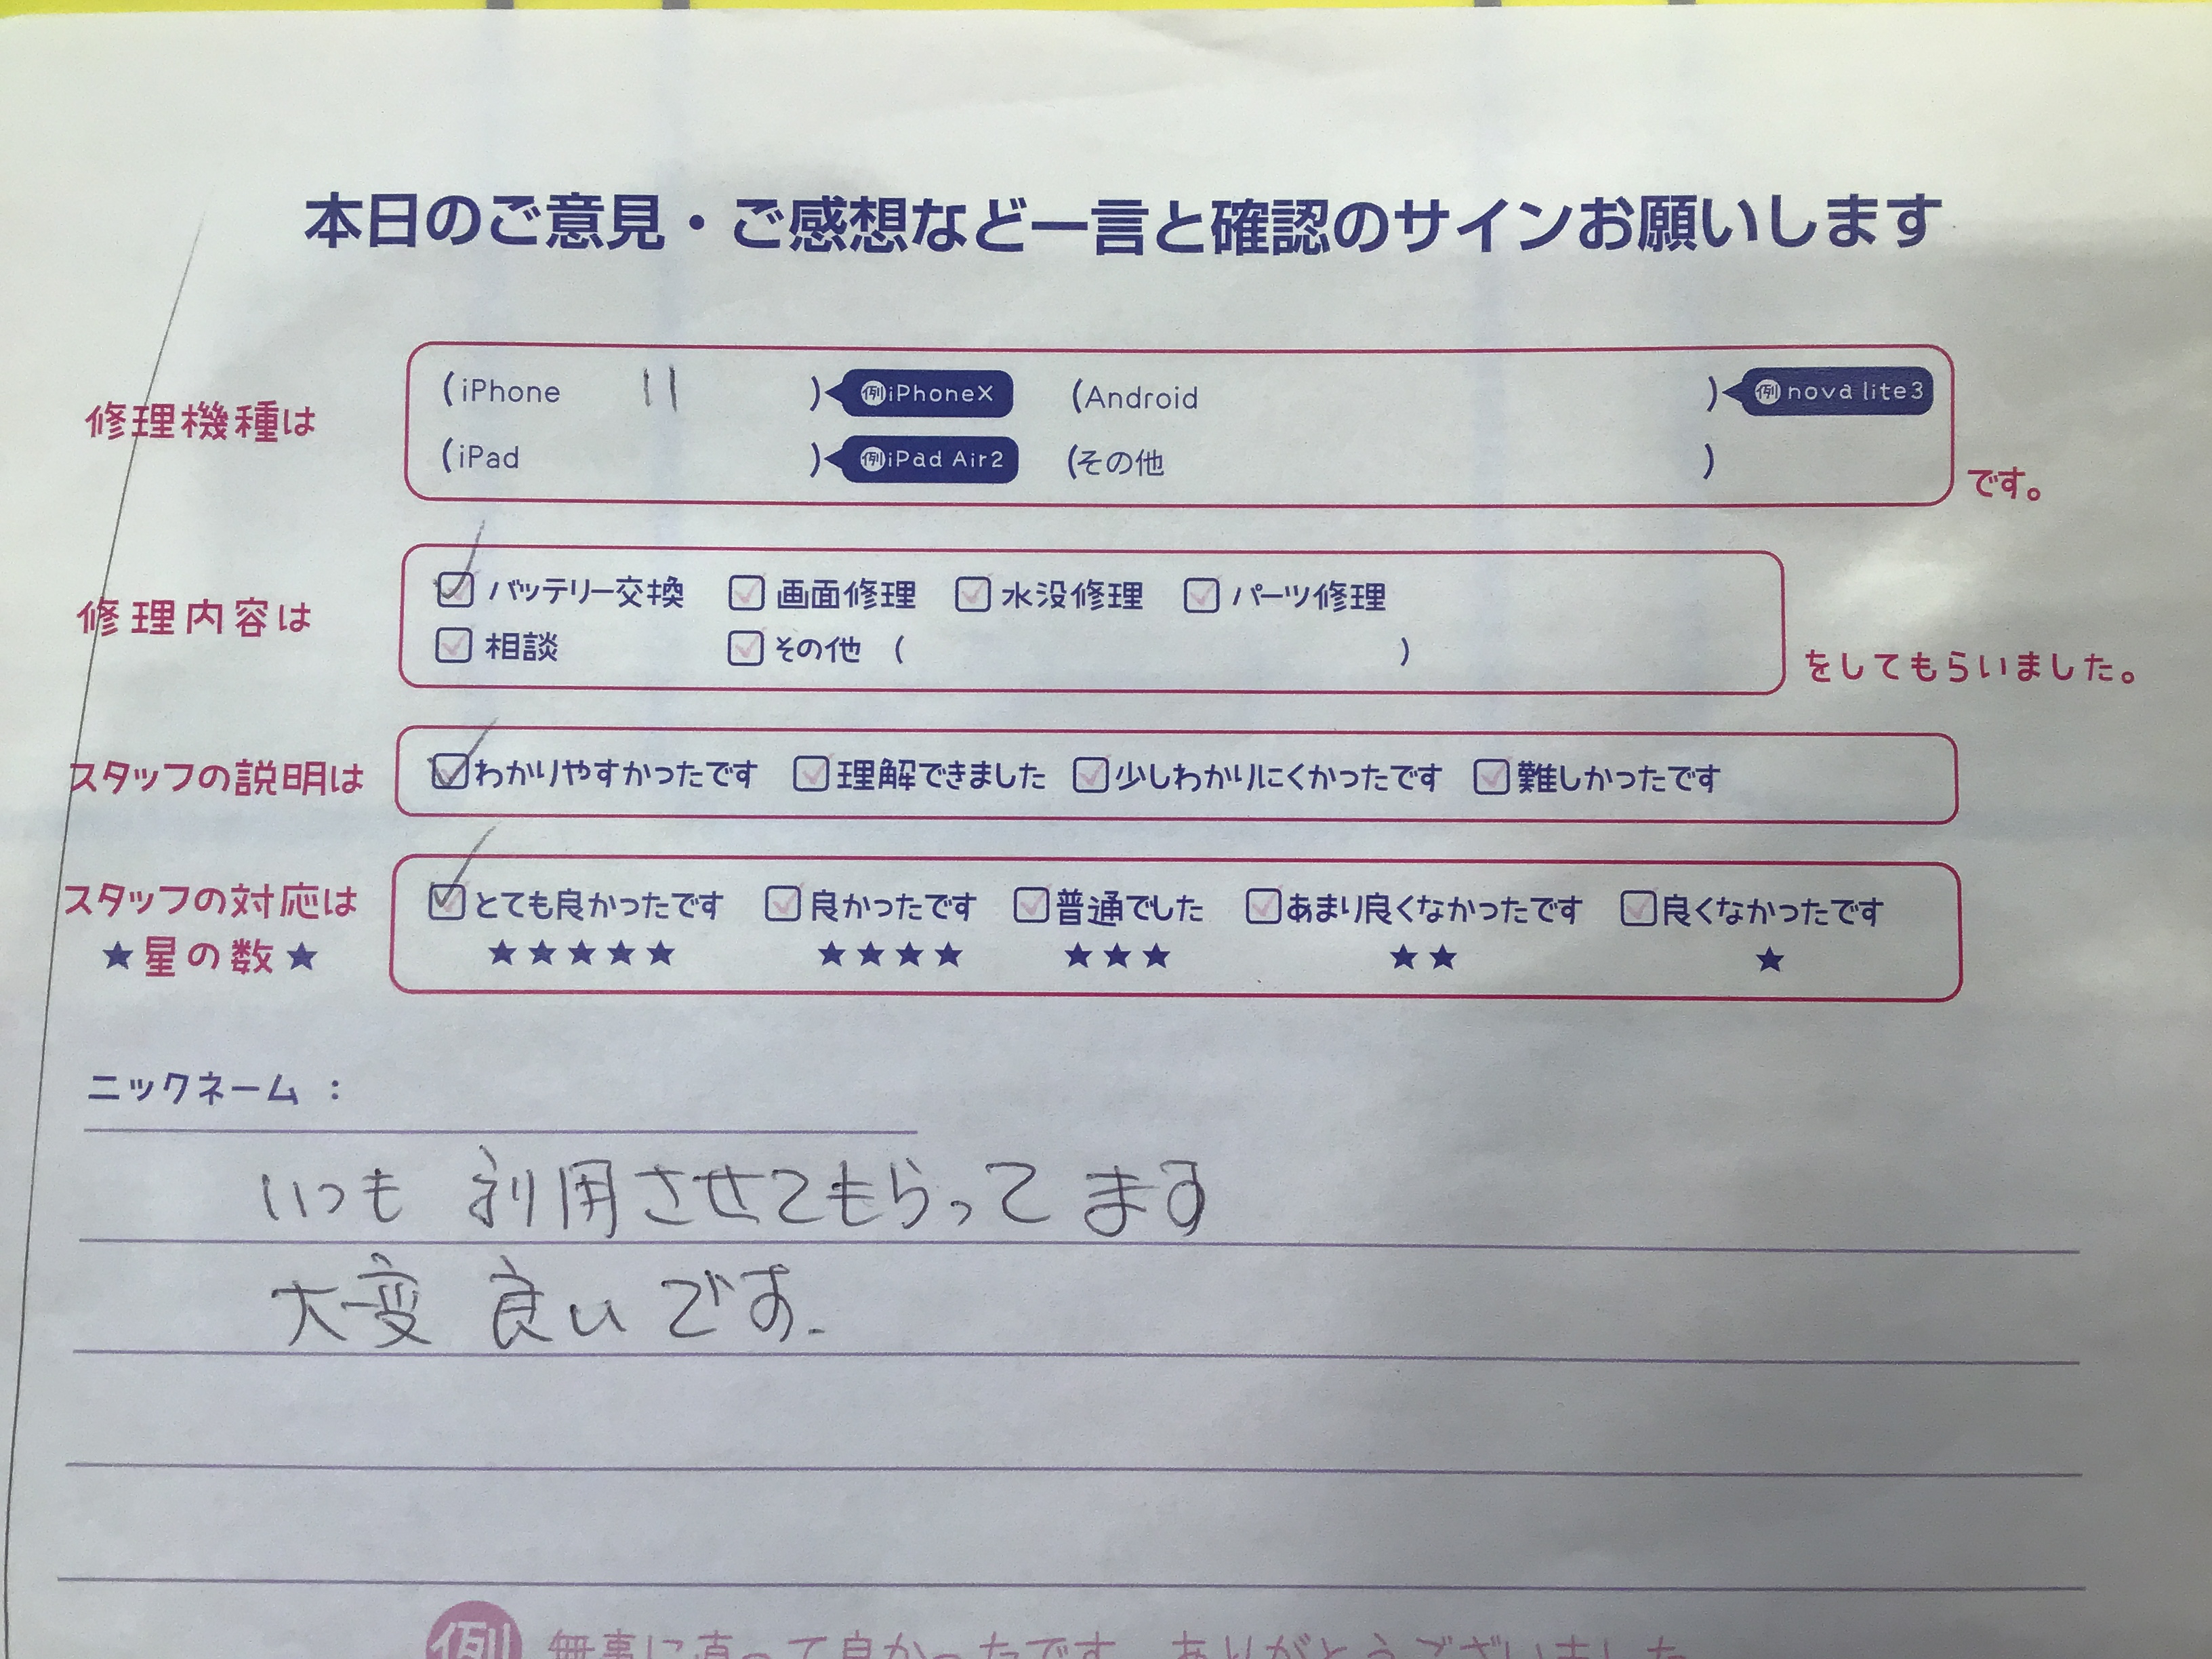 本日のご意見・ご感想など一言と確認のサインお願いします
修理機種は
(iPhone 11 ) 例iPhoneX (Android ) 例nova lite3
(iPad ) 例iPad Air2 (その他 )
です。
修理内容は
バッテリー交換 画面修理 水没修理 パーツ修理
相談 その他 ( )
をしてもらいました。
スタッフの説明は
わかりやすかったです 理解できました 少しわかりにくかったです 難しかったです
スタッフの対応は
★星の数★
とても良かったです 良かったです 普通でした あまり良くなかったです 良くなかったです
★★★★★ ★★★★ ★★★ ★★ ★
ニックネーム :
いつも 利用させてもらってます
大変 良いです.
例 無事に直って良かったです ありがとうございました